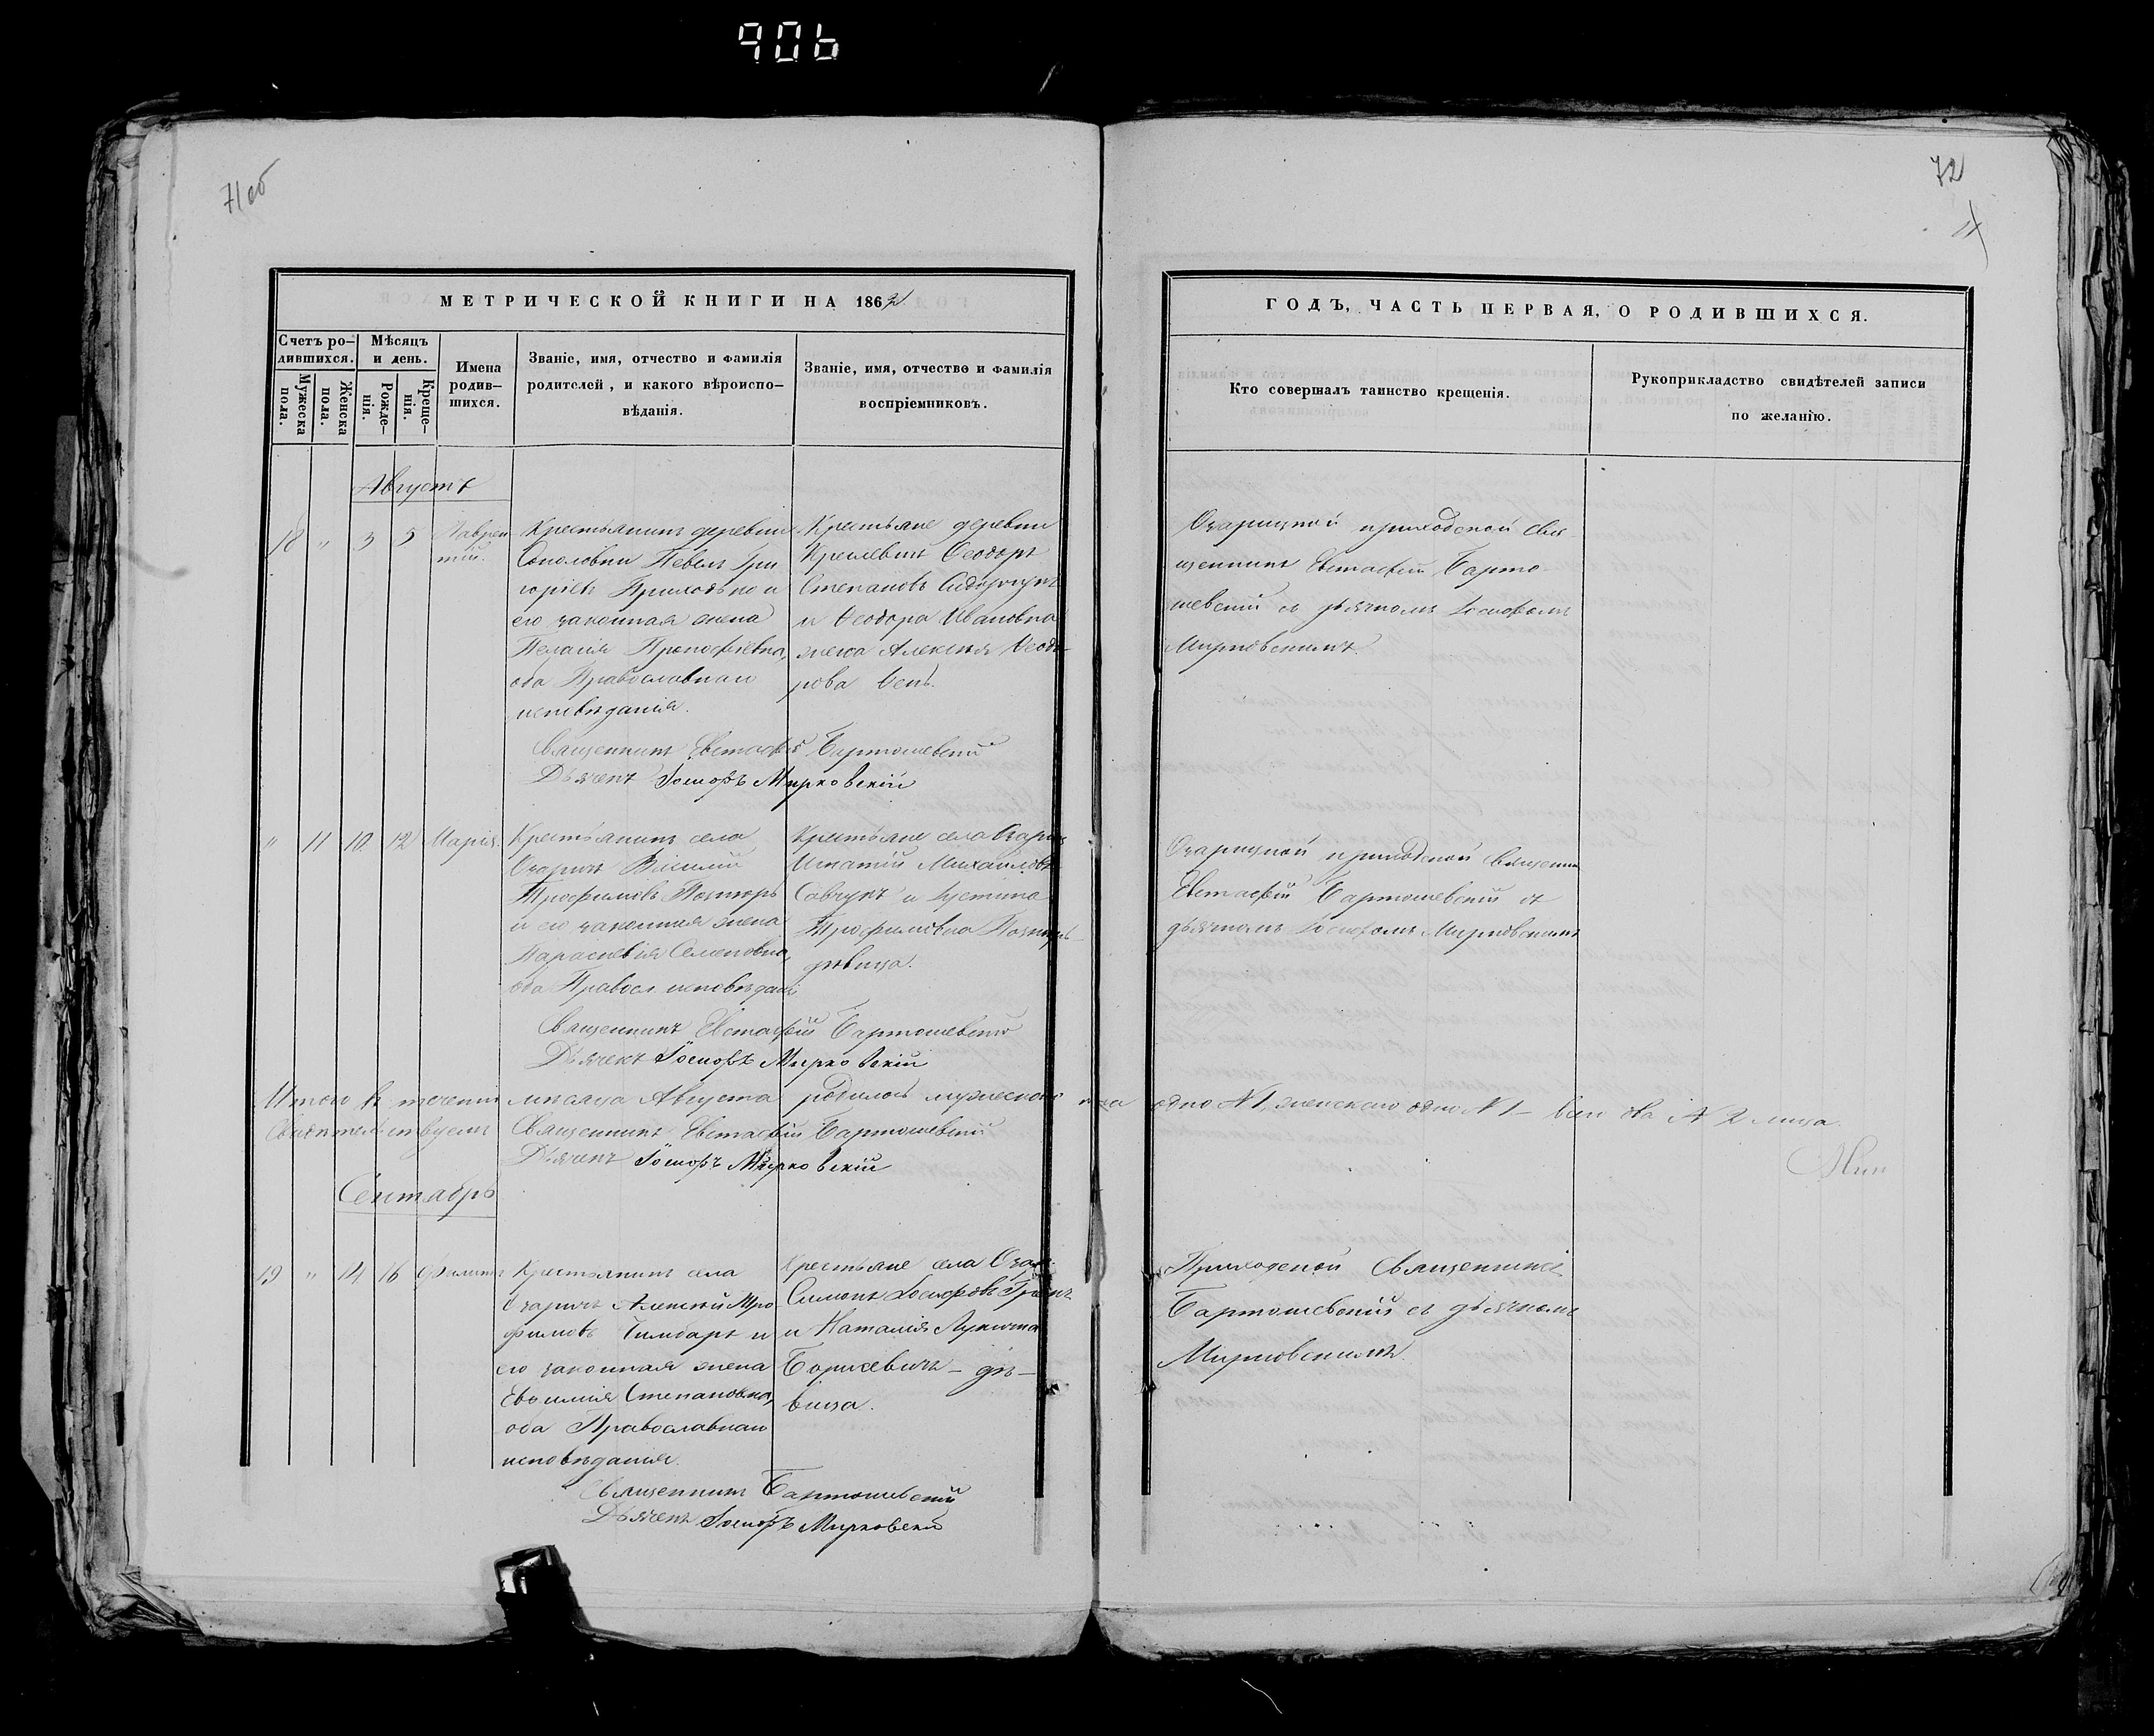 906
71 об
72
МЕТРИЧЕСКОЙ КНИГИ НА 1862
ГОДЪ, ЧАСТЬ ПЕРВАЯ, О РОДИВШИХСЯ.
Счетъ ро-
дившихся.
Мужеска
пола.
Женска
пола.
Мѣсяцъ
и день.
Рожде-
нія.
Креще-
нія.
Имена
родив-
шихся.
Званіе, имя, отчество и фамилія
родителей, и какого вѣроиспо-
вѣданія.
Званіе, имя, отчество и фамилія
воспріемниковъ.
Кто совершалъ таинство крещенія.
Рукоприкладство свидѣтелей записи
по желанію.
Августъ
18 " 3 5 Лаврен
тій.
Крестьянинъ деревни
Соколовки Павелъ Гри
горіевъ Приходько и
его законная жена
Пелагія Прокофіевна,
оба Православнаго
исповѣданія.
Крестьяне деревни
Ѳеодоръ
Степановъ Сидорчукъ
и Ѳеодора Ивановна
жена Алексѣя Ѳеодо-
рова
Озарицкой приходской Свя-
щенникъ Евстафій Барто-
шевскій съ дьячкомъ Іосифомъ
Мирковскимъ.
Священникъ Евстафій Бартошевскій
Дьячекъ Іосифъ Мирковскій
" 11 10 12 Марія.
Крестьянинъ села
Озаричъ Василій
Трофимовъ
и его законная жена
Параскевія Семеновна,
оба Правосл. исповѣданія
Крестьяне села Озаричъ
Игнатій Михайловъ
Савчукъ и Іустина
Трофимовна
дѣвица.
Озарицкой приходской Священникъ
Евстафій Бартошевскій съ
дьячкомъ Іосифомъ Мирковскимъ
Священникъ Евстафій Бартошевскій
Дьячекъ Іосифъ Мирковскій
Итого въ теченіи мѣсяца Августа родилось мужескаго пола одно № 1, женскаго одно № 1 – всего оба № 2 лица.
Свидѣтельствуемъ Священникъ Евстафій Бартошевскій
Дьячекъ Іосифъ Мирковскій
Сентябрь
19 " 14 16 Филиппъ
Крестьянинъ села
Озаричъ Алексѣй Тро
фимовъ и
его законная жена
Евфимія Степановна,
оба Православнаго
исповѣданія.
Крестьяне села Озар.
Симонъ Іосифовъ
и Наталія Лукина
Борисевичъ – дѣ-
вица.
Приходской Священникъ
Бартошевскій съ дьячкомъ
Мирковскимъ.
Священникъ Бартошевскій
Дьячекъ Іосифъ Мирковскій